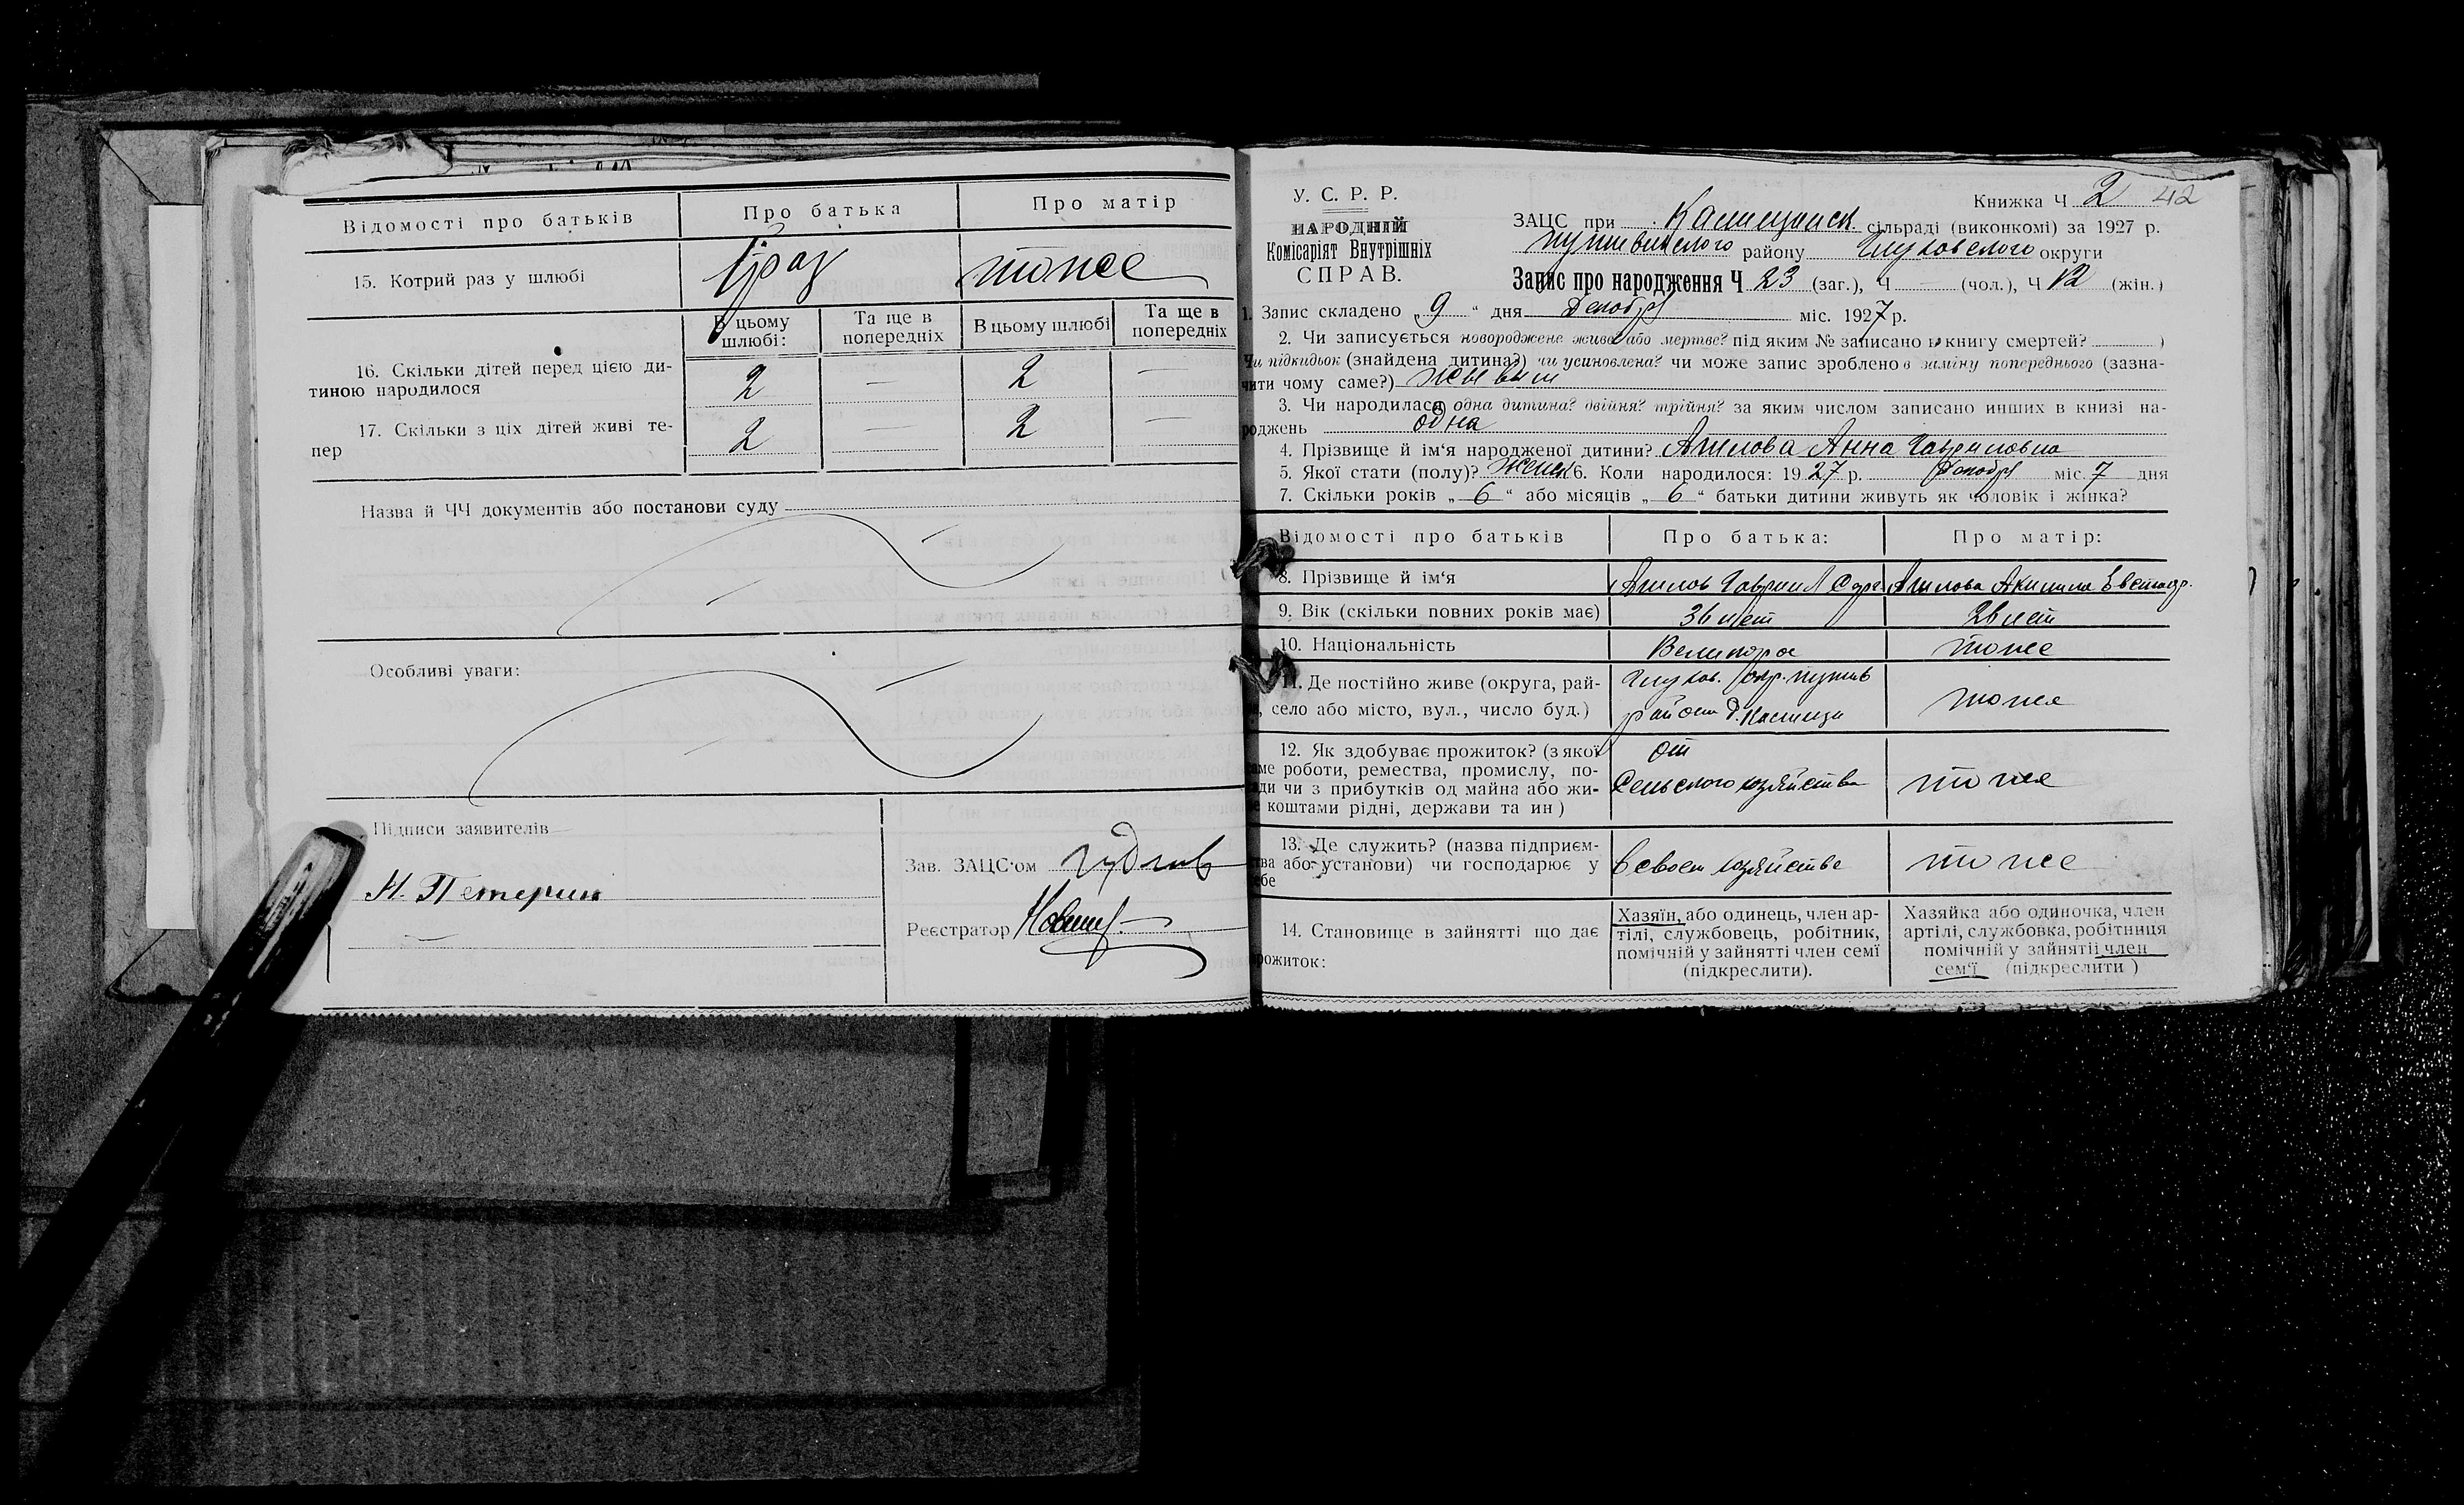 Відомості про батьків Про батька Про матір
15. Котрий раз у шлюбі 1 раз тоже
В цьому шлюбі: Та ще в попередніх В цьому шлюбі Та ще в попередніх
16. Скільки дітей перед цією ди-
тиною народилося 2 — 2 —
17. Скільки з ціх дітей живі те-
пер 2 — 2 —
Назва й ЧЧ документів або постанови суду
Особливі уваги:
Підписи заявителів
Н. Петерин
Зав. ЗАЦС'ом
Реєстратор
У. С. Р. Р.
НАРОДНІЙ
Комісаріят Внутрішніх
СПРАВ.
Книжка Ч 2 42
ЗАЦС при сільраді (виконкомі) за 1927 р.
Путивльского району Глуховского округи
Запис про народження Ч 23 (заг.), Ч — (чол.), Ч 12 (жін.)
1. Запис складено „ 9 “ дня Декабря міс. 1927 р.
2. Чи записується новороджене живе або мертве? під яким № записано в книгу смертей? )
Чи підкидьок (знайдена дитина?) чи усиновлена? чи може запис зроблено в заміну попереднього (зазна-
чити чому саме?) живым
3. Чи народилася одна дитина? двійня? трійня? за яким числом записано инших в книзі на-
роджень одна
4. Прізвище й ім'я народженої дитини? Ашлова Анна Гавриловна
5. Якої стати (полу)? Женск 6. Коли народилося: 1927 р. Декабря міс. 7 дня
7. Скільки років „ 6 “ або місяців „ 6 “ батьки дитини живуть як чоловік і жінка?
Відомості про батьків Про батька: Про матір:
8. Прізвище й ім'я Ашлов Гавриил Ашлова Акилина
9. Вік (скільки повних років має) 36 лет 28 лет
10. Національність Великорос тоже
11. Де постійно живе (округа, рай-
он, село або місто, вул., число буд.) Глухов. окр. Путив район тоже
12. Як здобуває прожиток? (з якої
саме роботи, ремества, промислу, по-
ади чи з прибутків од майна або жи-
е коштами рідні, держави та ин ) от Сельского хозяйства тоже
13. Де служить? (назва підприєм-
тва або установи) чи господарює у
ебе в своем хозяйстве тоже
14. Становище в зайнятті що дає
прожиток:
Хазяїн, або одинець, член ар-
тілі, службовець, робітник,
помічній у зайнятті член семі
(підкреслити).
Хазяйка або одиночка, член
артілі, службовка, робітниця
помічній у зайнятіі член
сем'ї (підкреслити )